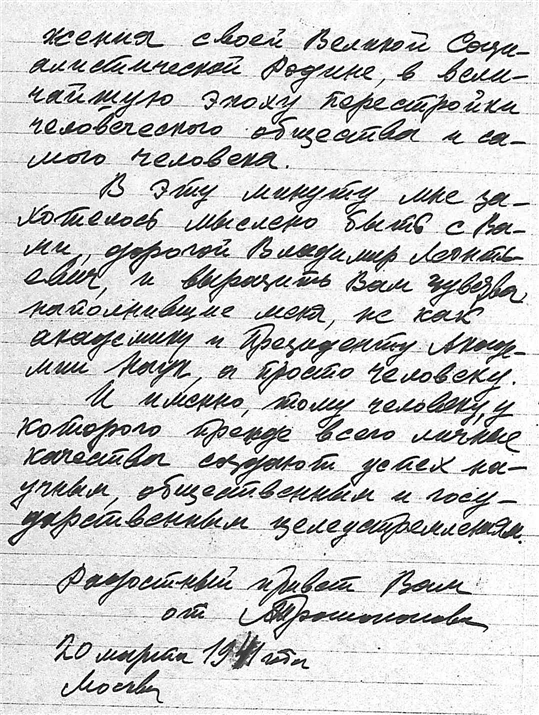 жения своей Великой Соци-
алистической Родине, в вели-
чайшую эпоху перестройки
человеческого общества и са-
мого человека.
В эту минуту мне за-
хотелось мыслено быть с Ва-
ми, дорогой Владимир Леонть-
евич, и выразить Вам чувства
наполнившие меня, не как
академику и Президенту Акаде-
мии Наук, а просто человеку.
И именно, тому человеку, у
которого прежде всего личные
качества создают успех на-
учным, общественным и госу-
дарственным целеустремлениям.
Радостный привет Вам
от
20 марта 1941 г
Москва